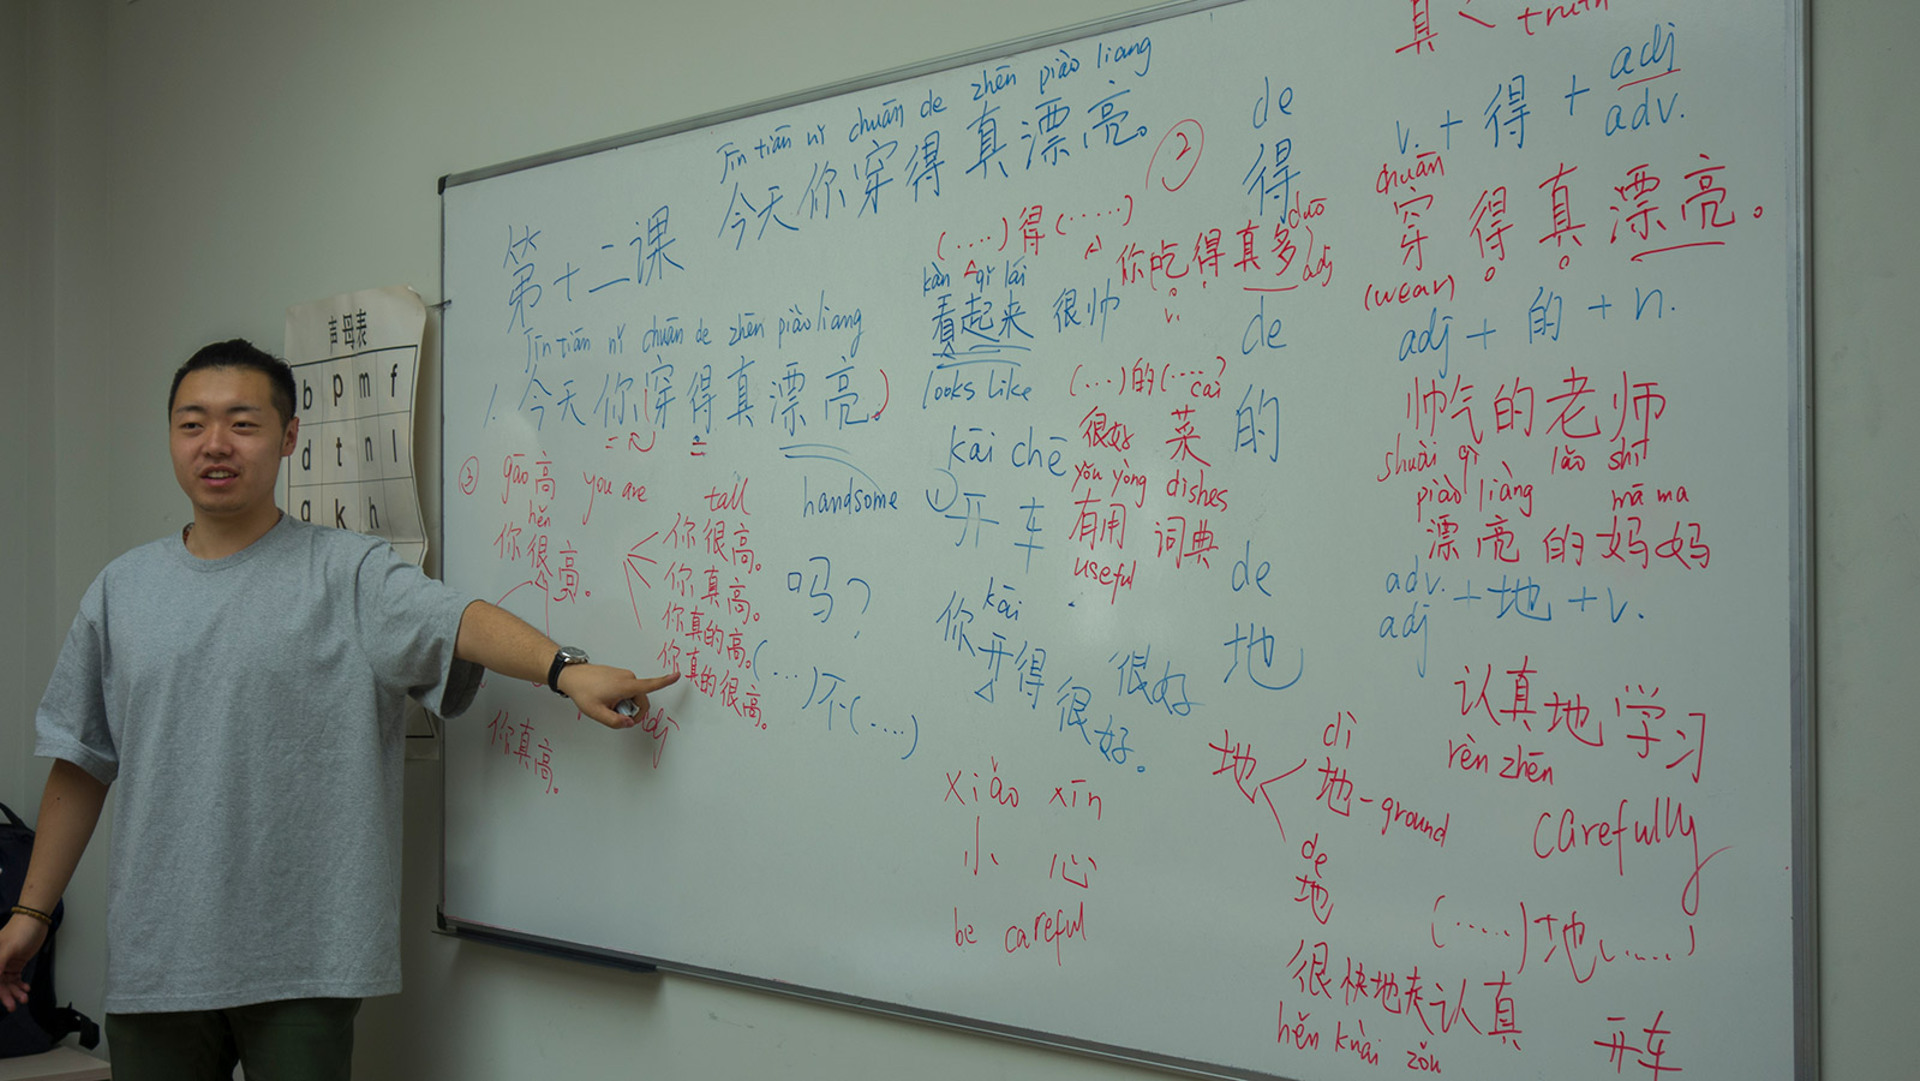 声母表
b p m f
d t n l
g k h
jīn tiān nǐ chuān de zhēn piào liang
今天你穿得真漂亮。
第十二课
Jīn tiān nǐ chuān de zhēn piào liang
1. 今天你(穿得真漂亮。)
handsome
③ gāo 高 you are tall
hěn
你很高。
你真高。
adj
你很高。
你真高。
你真的高。
你真的很高。
吗?
(...)不(....)
(....)得(.....)
kàn qǐ lái
看起来 很帅
looks like
kāi chē
① 开车
kāi
你开得很好
很好。
xiǎo xīn
小 心
be careful
②
duō
你吃得真多
v. adj
(...)的(....)
cài
很好 菜
yǒu yòng dishes
有用 词典
useful
de
得
de
的
de
地
真 < truth
v. + 得 + adj
adv.
chuān
穿得真漂亮。
(wear)
adj + 的 + n.
帅气的老师
shuài qì lǎo shī
piào liàng mā ma
漂亮的妈妈
adv. + 地 + v.
adj
认真地学习
rèn zhēn
carefully
地 <
dì
地 - ground
de
地
(.....)地(.....)
很快地走 认真
hěn kuài zǒu
开车